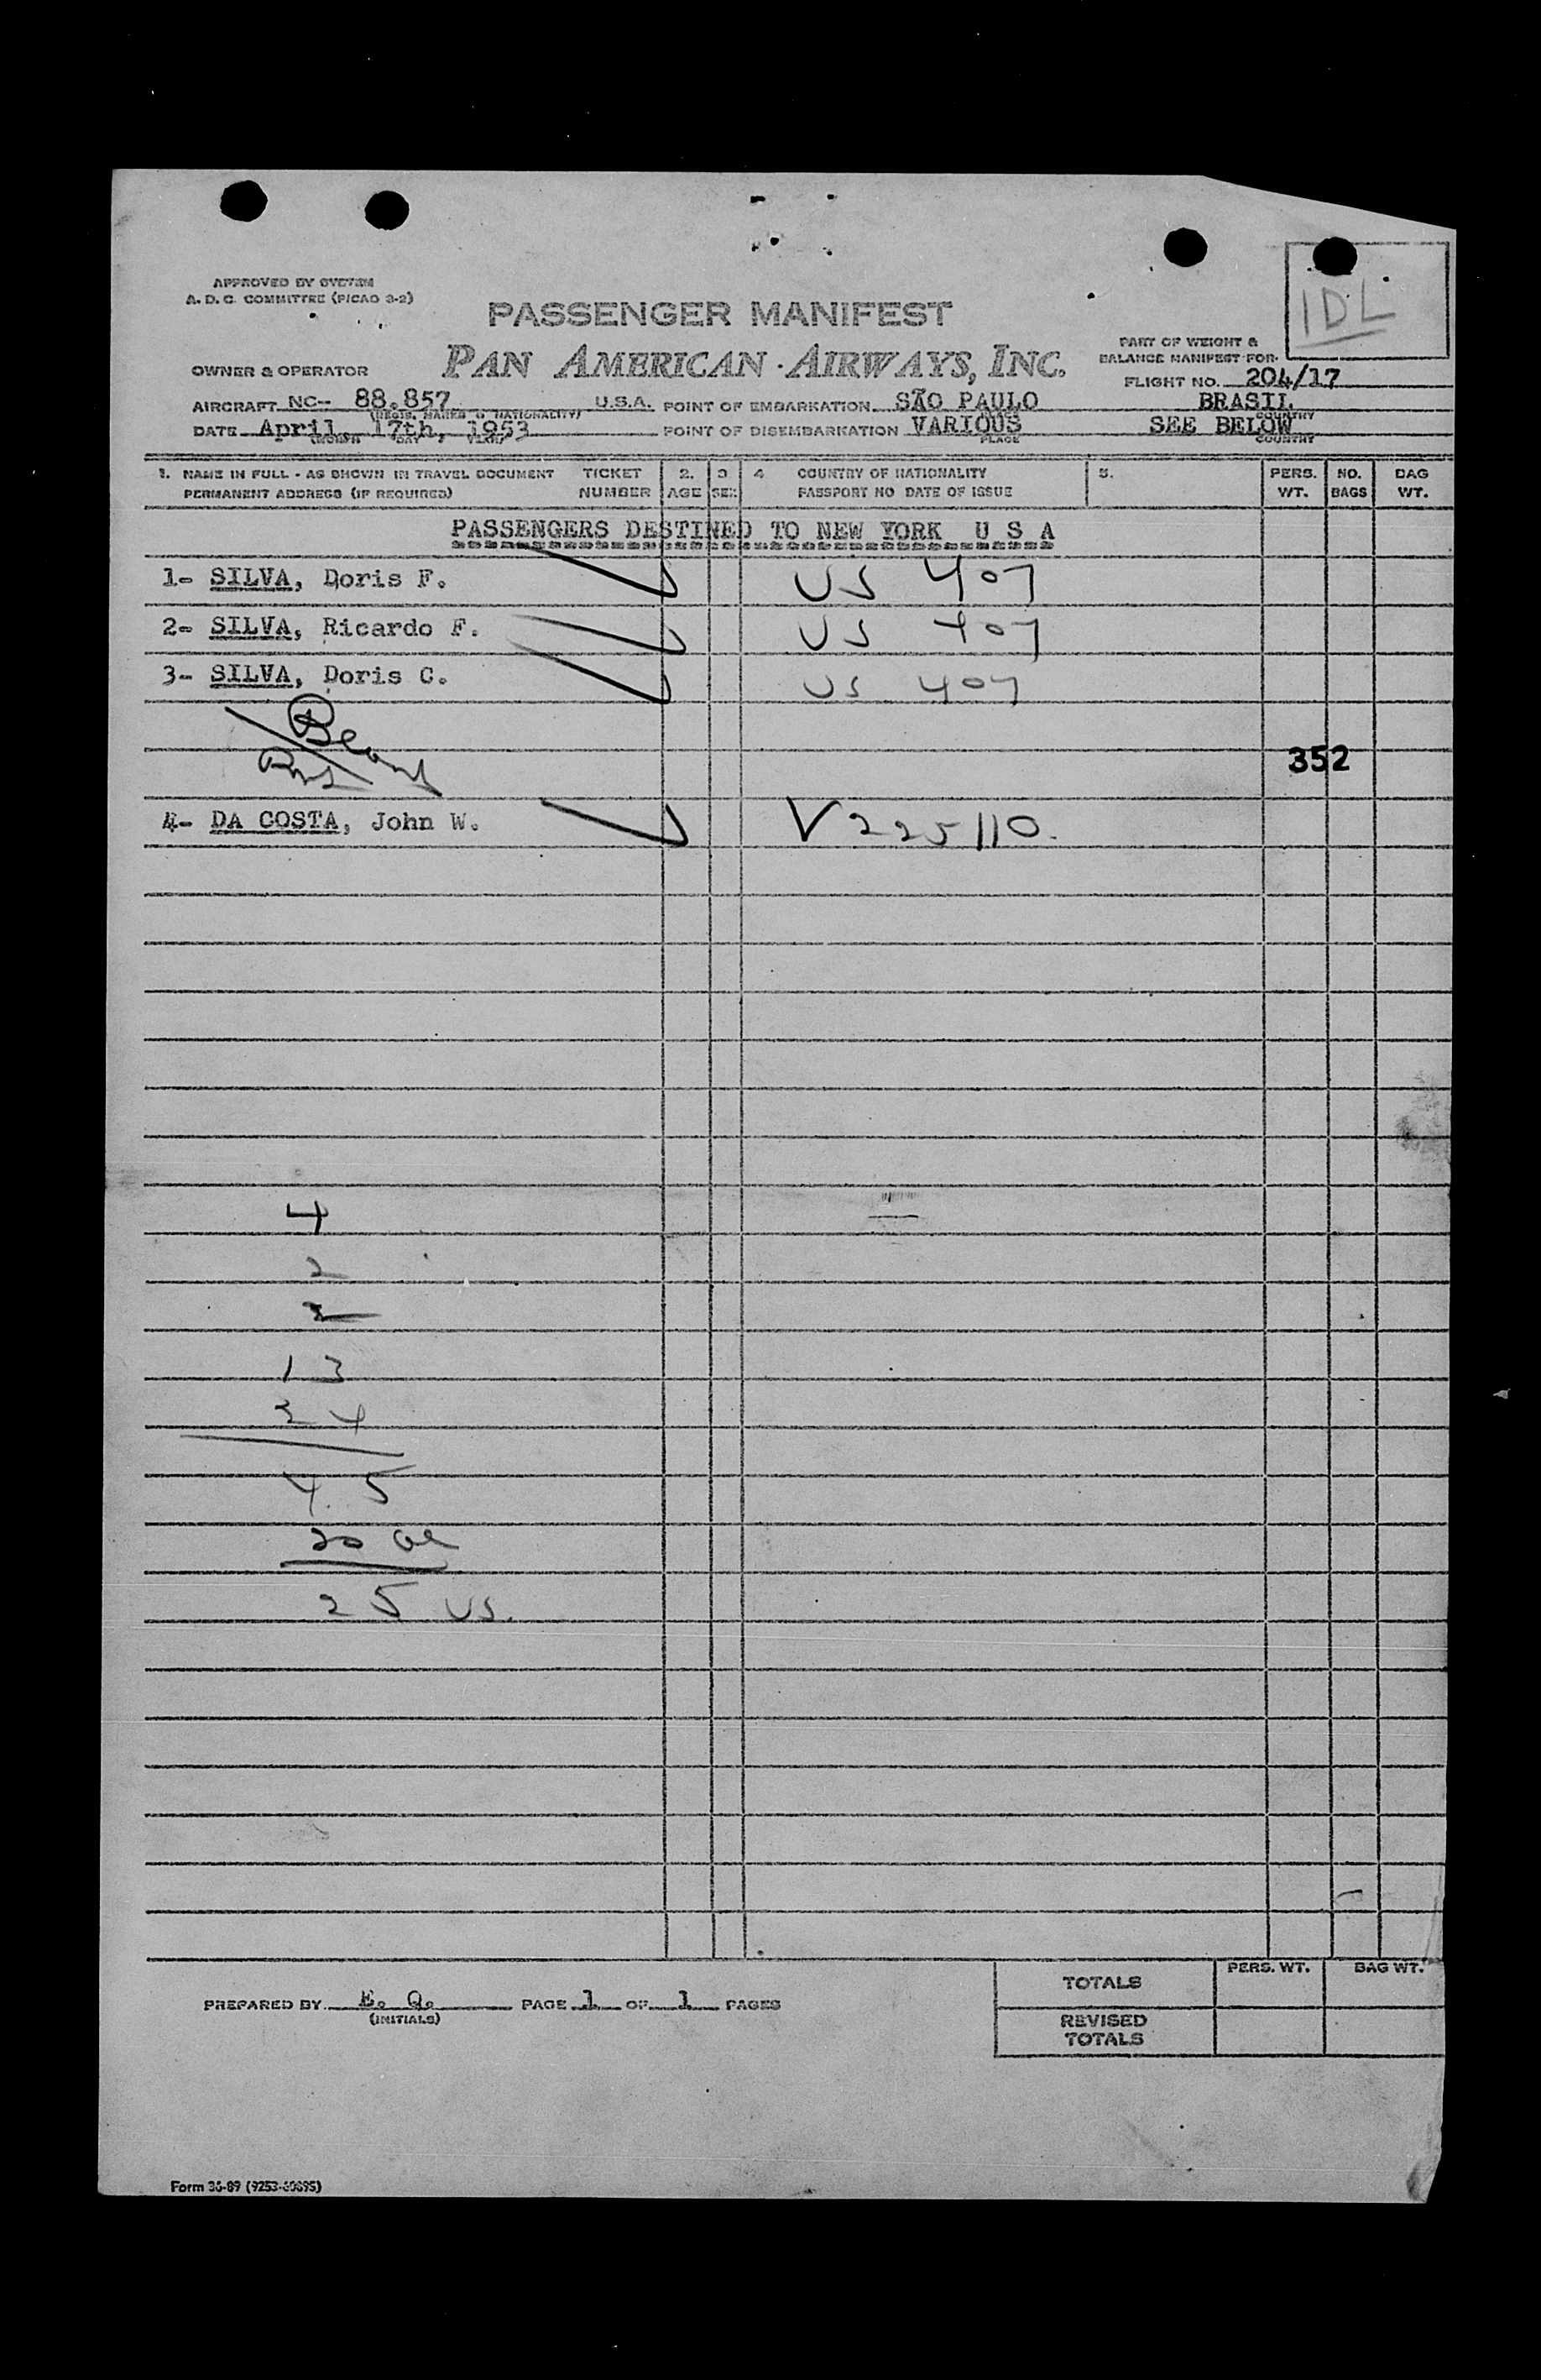 IDL
APPROVED BY SYSTEM
A. D. C. COMMITTEE (PICAO 3-2)
PASSENGER MANIFEST
PAN AMERICAN AIRWAYS, INC.
PART OF WEIGHT &
BALANCE MANIFEST FOR
OWNER & OPERATOR
FLIGHT NO. 204/17
AIRCRAFT NC- 88.857 U.S.A. POINT OF EMBARKATION SÃO PAULO BRASIL
(REGIS. MARKS & NATIONALITY) PLACE COUNTRY
DATE April, 17th, 1953 POINT OF DISEMBARKATION VARIOUS SEE BELOW
MONTH DAY YEAR PLACE COUNTRY
1. NAME IN FULL - AS SHOWN IN TRAVEL DOCUMENT TICKET 2. 3 4 COUNTRY OF NATIONALITY 5. PERS. NO. BAG
PERMANENT ADDRESS (IF REQUIRED) NUMBER AGE SEX PASSPORT NO DATE OF ISSUE WT. BAGS WT.
PASSENGERS DESTINED TO NEW YORK U S A
1- SILVA, Doris F. US 407
2- SILVA, Ricardo F. US 407
3- SILVA, Doris C. US 407
352
4- DA COSTA, John W. V 225110.
4
2
2
13
24
45
20
25 US.
PREPARED BY E. Q. PAGE 1 OF 1 PAGES
(INITIALS)
TOTALS PERS. WT. BAG WT.
REVISED
TOTALS
Form 36-89 (9253-60895)